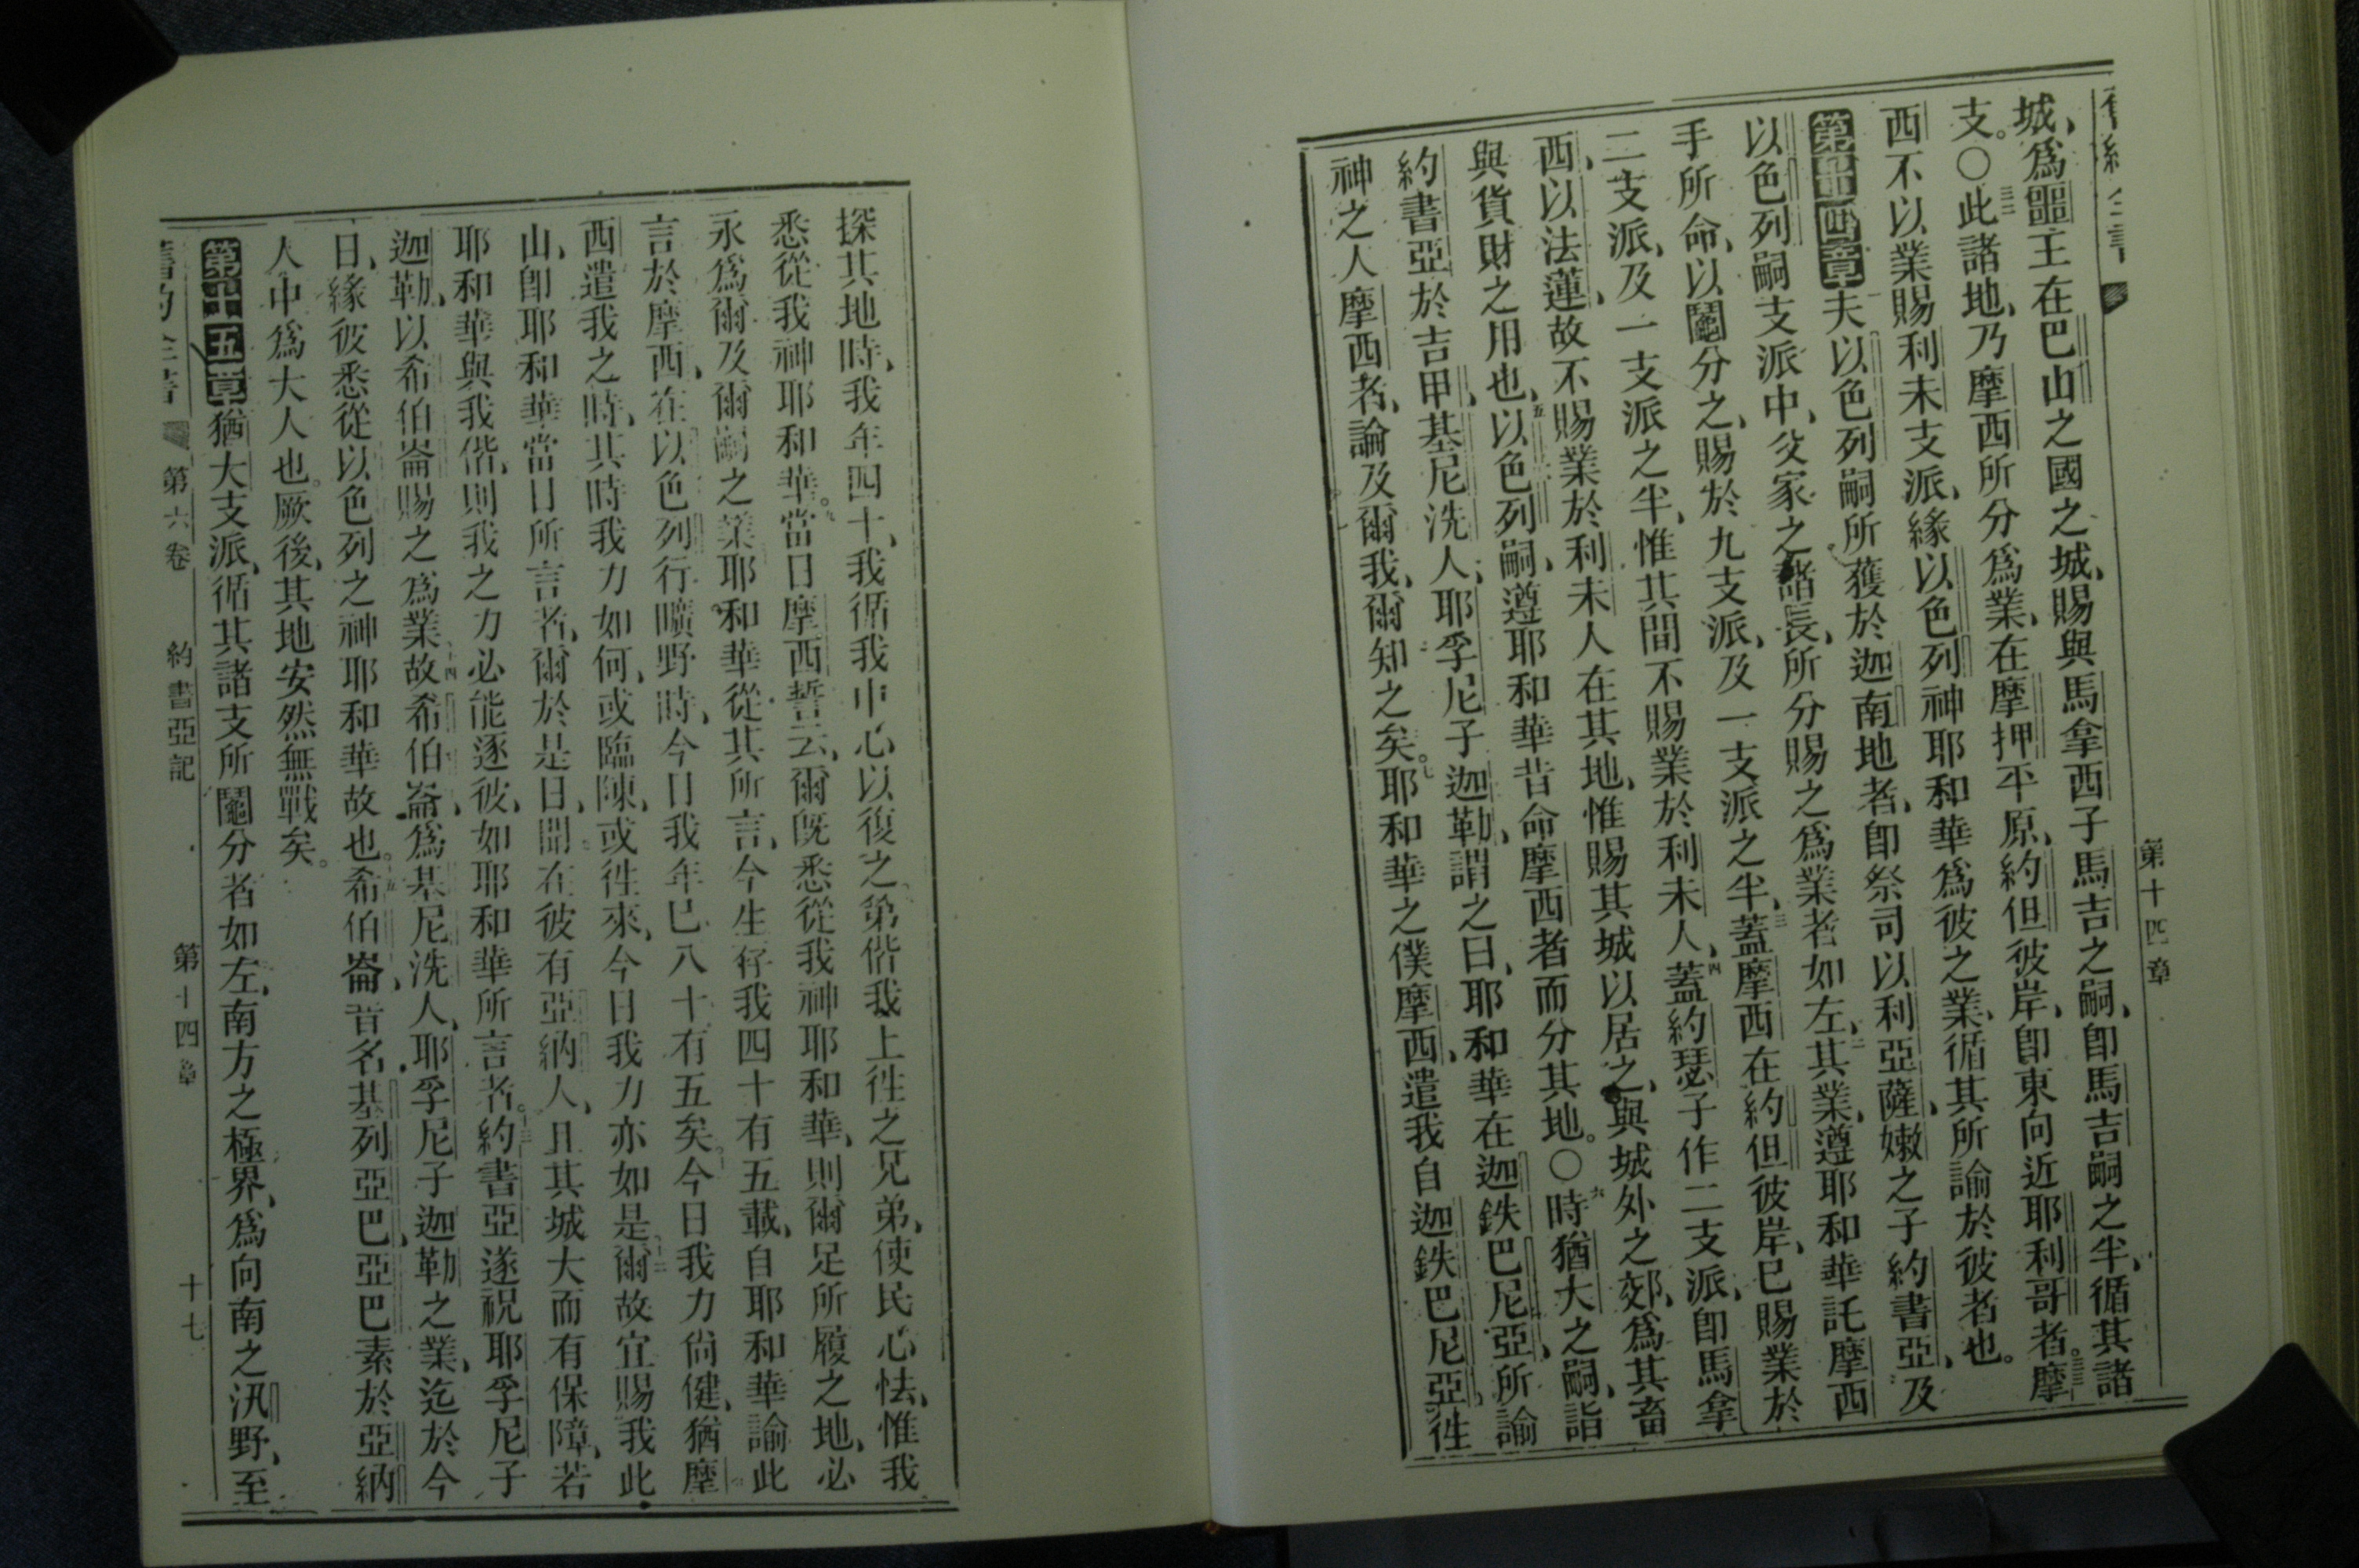 第十四章
城、爲噩王在巴山之國之城、賜與馬拿西子馬吉之嗣、卽馬吉嗣之半、循其諸
支。○此諸地、乃摩西所分爲業、在摩押平原、約但彼岸、卽東向近耶利哥者。摩
西不以業賜利未支派、緣以色列神耶和華爲彼之業、循其所諭於彼者也。
第十四章夫以色列嗣所獲於迦南地者、卽祭司以利亞薩、嫩之子約書亞、及
以色列嗣支派中、父家之諸長、所分賜之爲業者如左、二其業、遵耶和華託摩西
手所命、以鬮分之、賜於九支派、及一支派之半、三蓋摩西在約但彼岸、已賜業於
二支派、及一支派之半、惟其間不賜業於利未人、四蓋約瑟子作二支派、卽馬拿
西、以法蓮、故不賜業於利未人在其地、惟賜其城以居之、與城外之郊、爲其畜
與貨財之用也、五以色列嗣、遵耶和華昔命摩西者而分其地。○六時猶大之嗣、詣
約書亞於吉甲、基尼洗人、耶孚尼子迦勒、謂之曰、耶和華在迦鉄巴尼亞、所諭
神之人摩西者、論及爾我、爾知之矣。七耶和華之僕摩西、遣我自迦鉄巴尼亞、徃
探其地時、我年四十、我循我中心以復之、第偕我上徃之兄弟、使民心怯、惟我
悉從我神耶和華。九當日摩西誓云、爾旣悉從我神耶和華、則爾足所履之地、必
永爲爾及爾嗣之業、耶和華從其所言、今生存我四十有五載、自耶和華諭此
言於摩西、在以色列行曠野時、今日我年已八十有五矣、今日我力尙健、猶摩
西遣我之時、其時我力如何、或臨陳、或徃來、今日我力亦如是、十二爾故宜賜我此
山、卽耶和華當日所言者、爾於是日、聞在彼有亞納人、且其城大而有保障、若
耶和華與我偕、則我之力必能逐彼、如耶和華所言者。十三約書亞遂祝耶孚尼子
迦勒、以希伯崙賜之爲業、十四故希伯崙、爲基尼洗人、耶孚尼子迦勒之業、迄於今
日、緣彼悉從以色列之神耶和華故也。十五希伯崙、昔名基列亞巴、亞巴素於亞納
人中爲大人也。厥後、其地安然無戰矣。
第十五章猶大支派、循其諸支所鬮分者如左、南方之極界、爲向南之汛野、至
第六卷 約書亞記 第十四章 十七